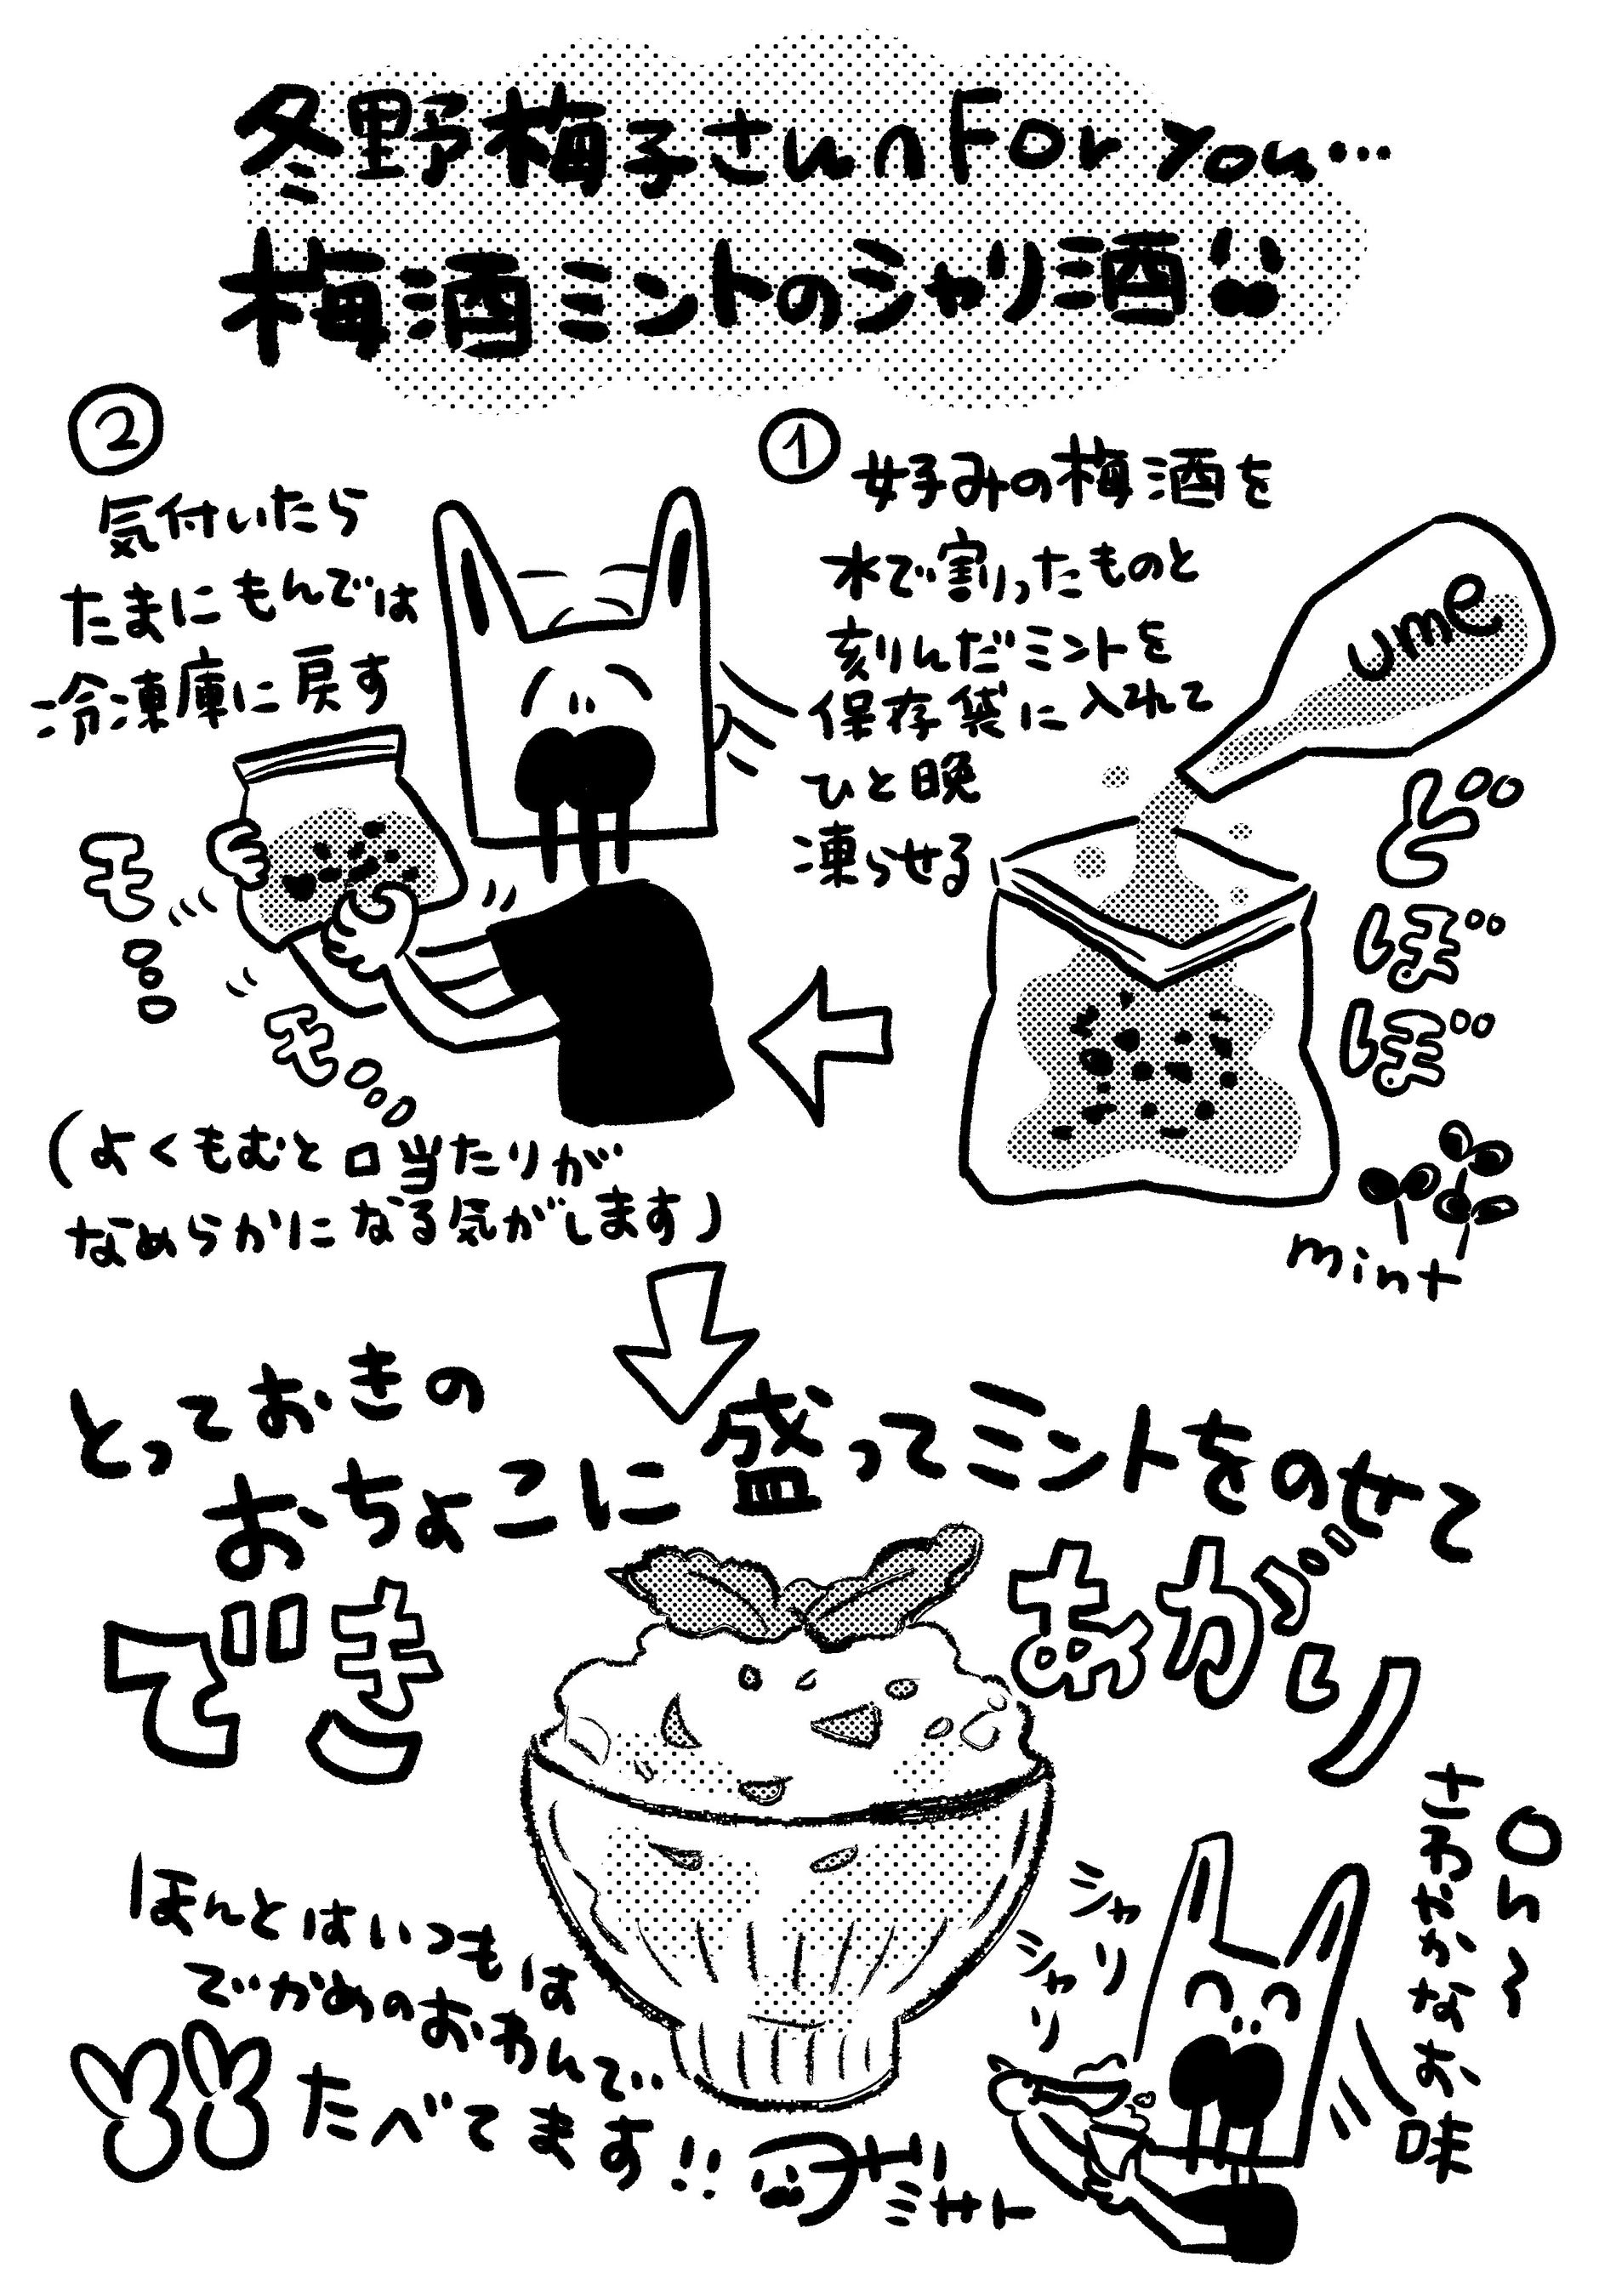 冬野梅子さんへFor You…
梅酒ミントのシャリ酒
①
好みの梅酒を
水で割ったものと
刻んだミントを
保存袋に入れて
ひと晩
凍らせる
ume
どぼぼ
mint
②
気付いたら
たまにもんでは
冷凍庫に戻す
モ…
モ…
(よくもむと口当たりが
なめらかになる気がします)
とっておきの
おちょこに盛ってミントをのせて
できあがり
ん〜
さわやかなお味
シャリ
シャリ
ほんとはいつもは
でかめのおわんで…
たべてます!!
ミサト